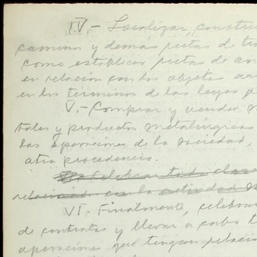 IV.- Localizar, constru
caminos y demás pistas de tra
como establecer pistas de a
en relación con los objetos an
en los términos de las leyes p
V.- Comprar y vender m
tales y productos metalúrgicos
las operaciones de la sociedad,
otra procedencia.
relacionad con la actividad
VI.- Finalmente, celebrar
de contratos y llevar a cabo t
operaciones que tengan relació